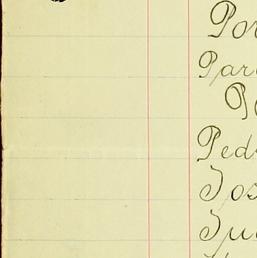 Por
Par
Pe
Ped
Jos
Ju